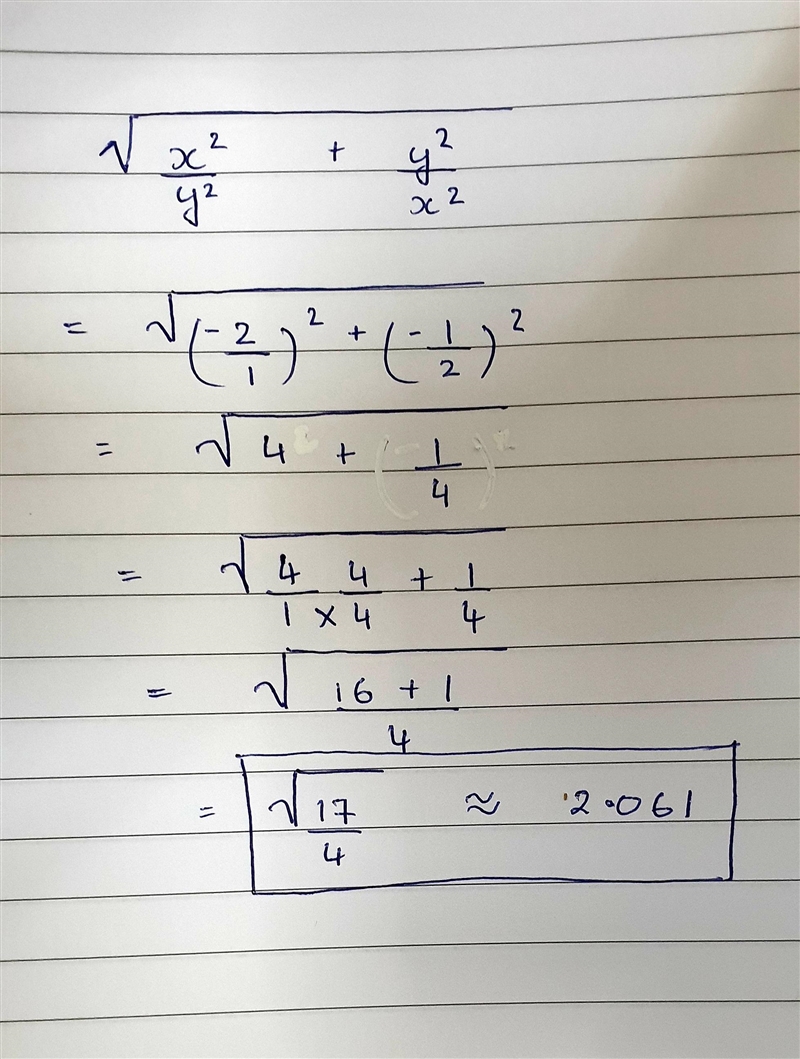 √(x²/y² + y²/x²)
= √((-2/1)² + (-1/2)²)
= √(4 + 1/4)
= √(4/1 × 4/4 + 1/4)
= √((16 + 1)/4)
= √(17/4) ≈ 2.061